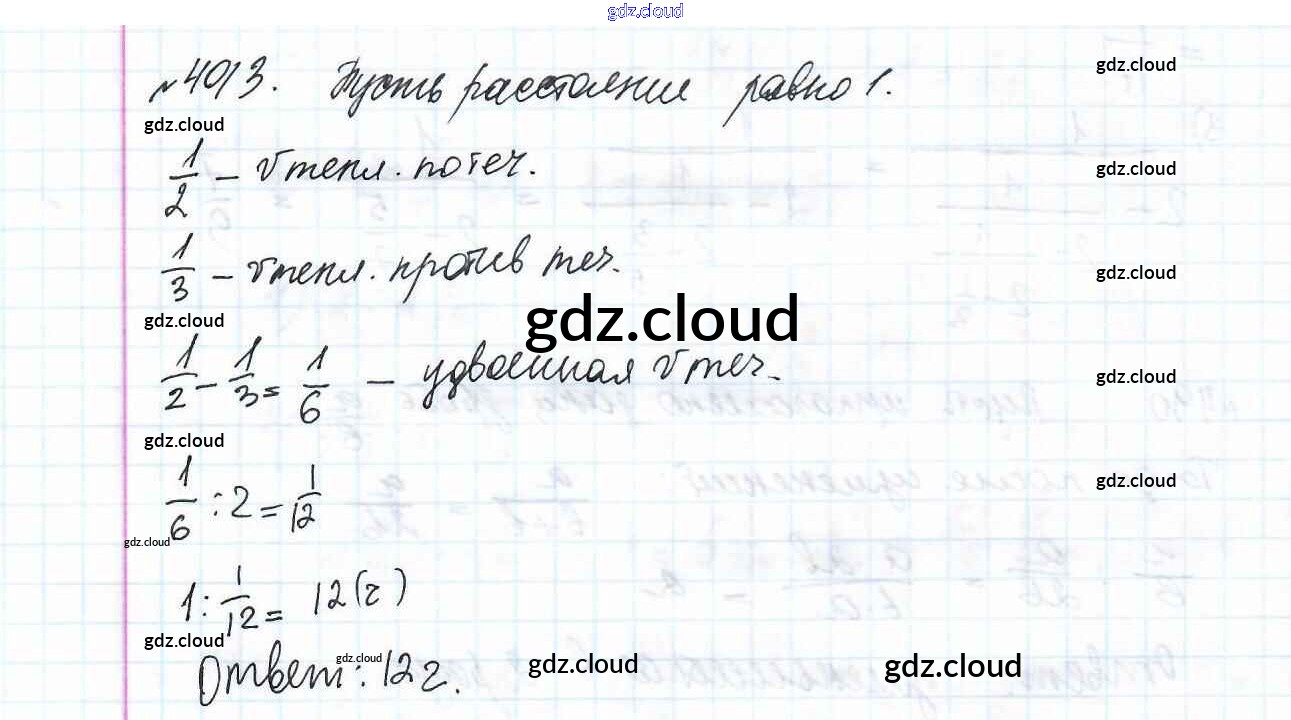 gdz.cloud
№4013. Пусть расстояние равно 1.
gdz.cloud
gdz.cloud
1/2 – v тепл. по теч.
gdz.cloud
1/3 – v тепл. против теч.
gdz.cloud
gdz.cloud
gdz.cloud
1/2 – 1/3 = 1/6 – удвоенная v теч.
gdz.cloud
gdz.cloud
1/6 : 2 = 1/12
gdz.cloud
gdz.cloud
1 : 1/12 = 12 (г)
gdz.cloud
Ответ: 12 г.
gdz.cloud
gdz.cloud
gdz.cloud